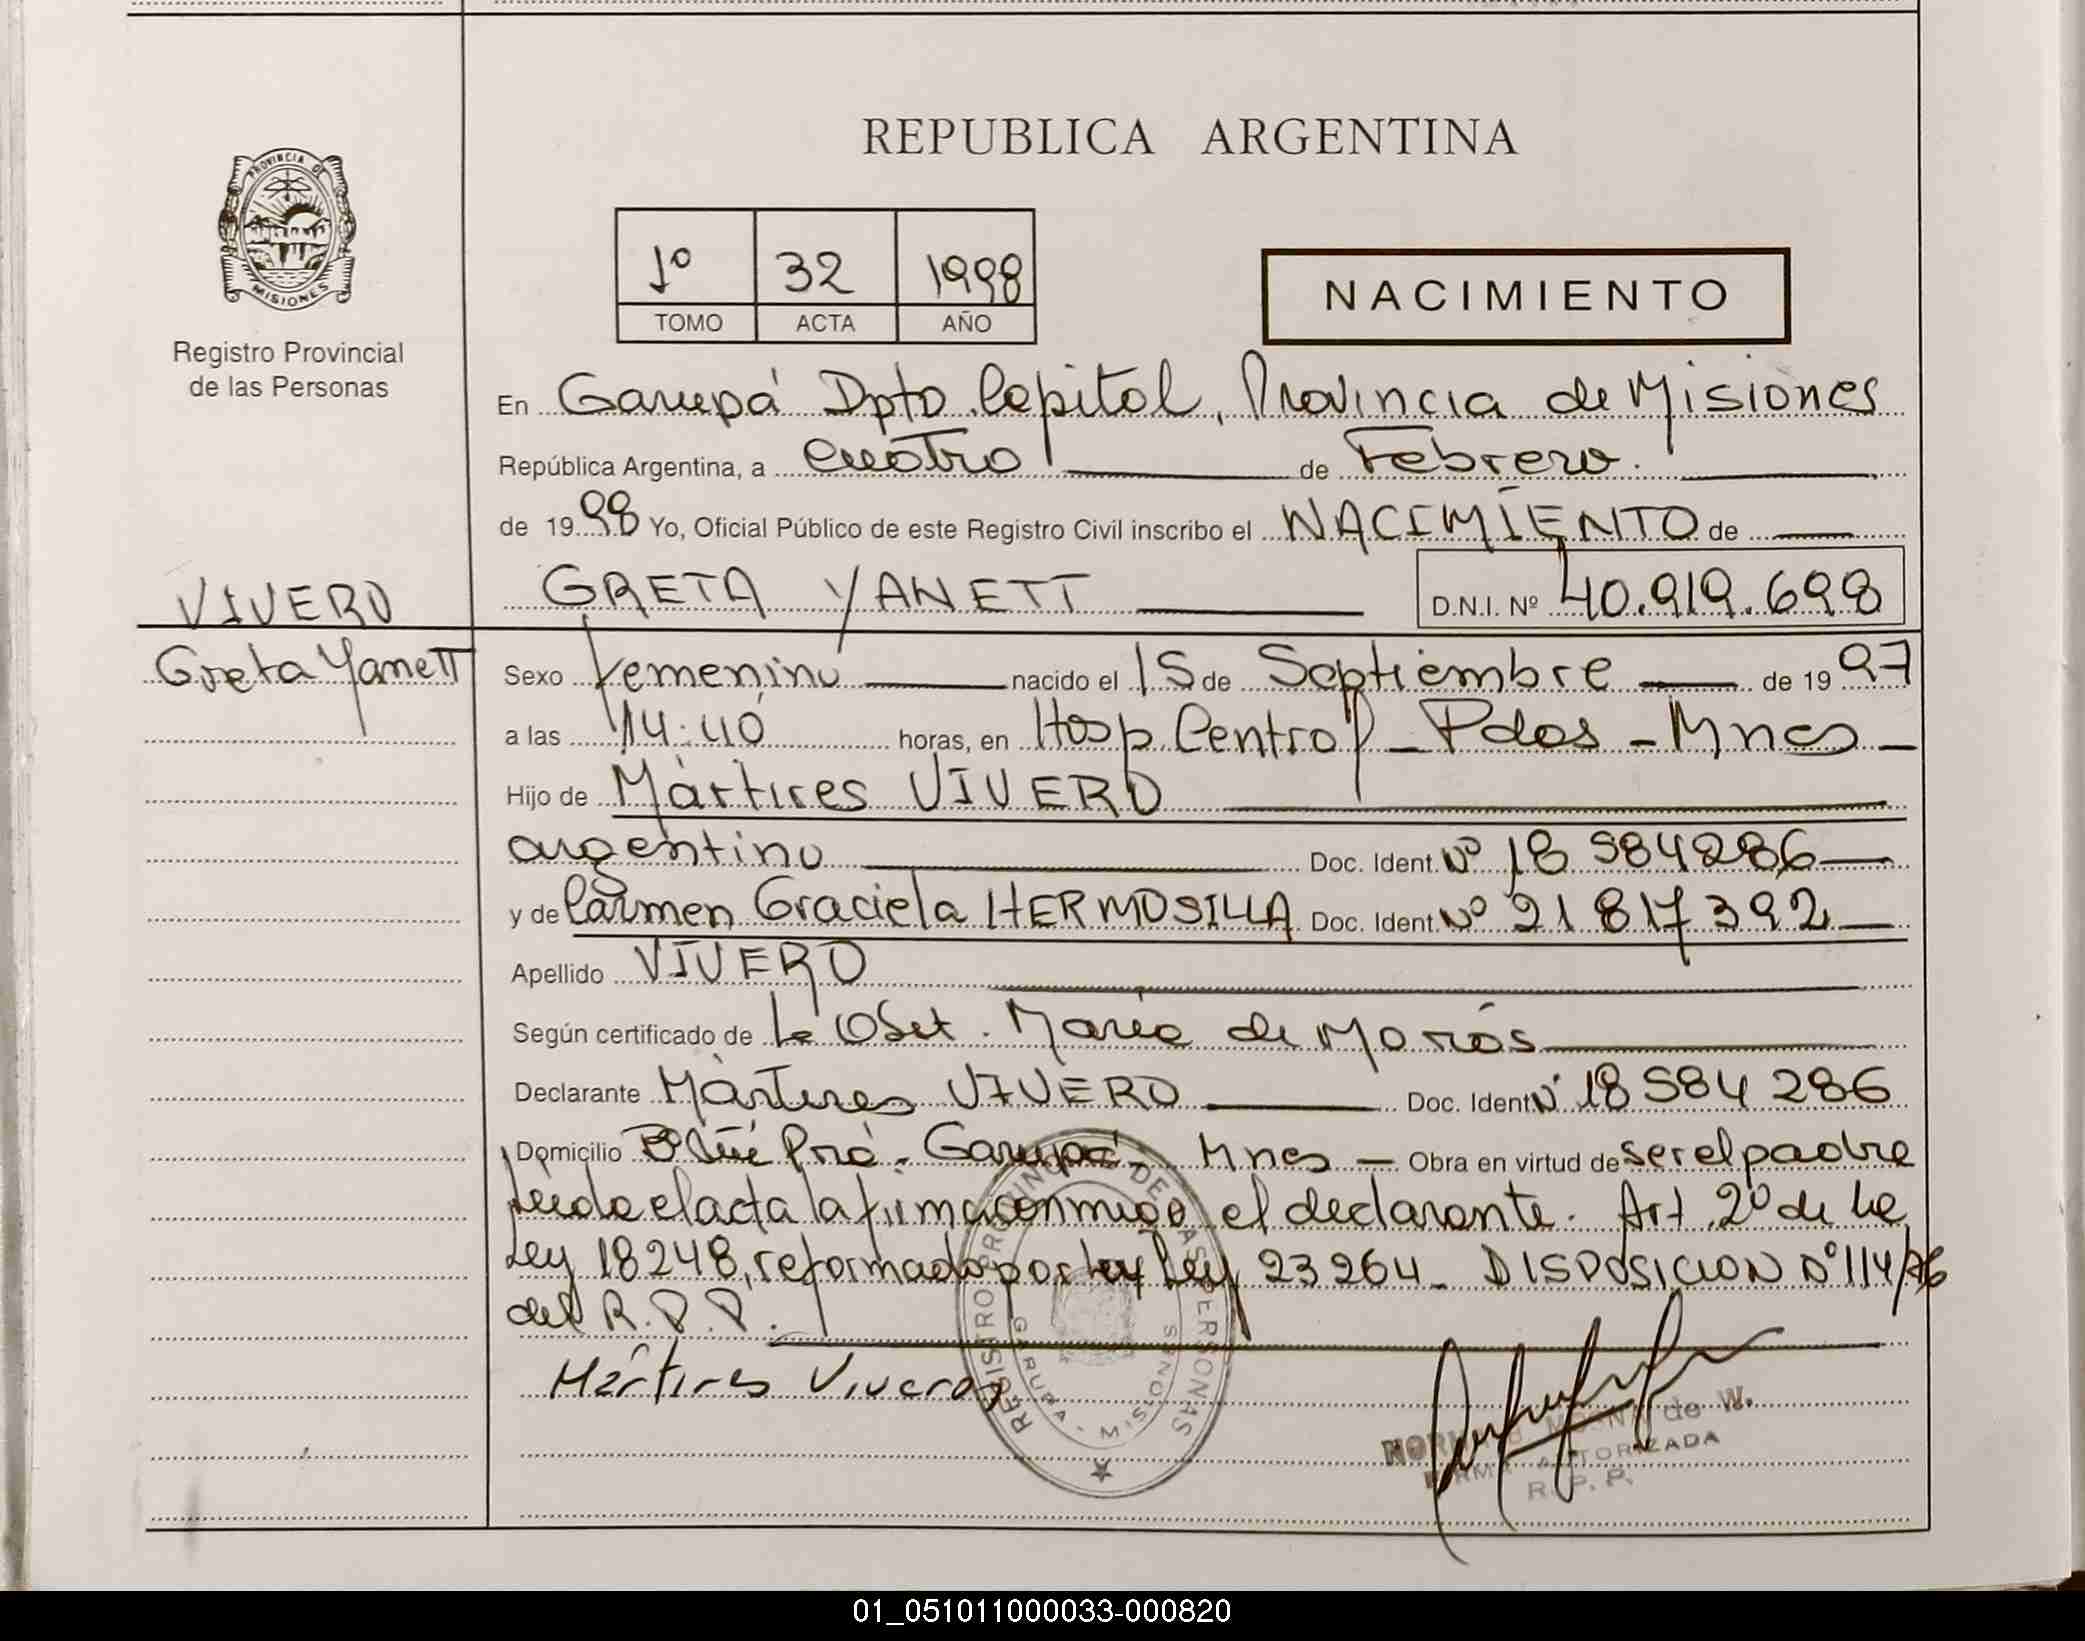 REPUBLICA ARGENTINA
PROVINCIA DE
MISIONES
Registro Provincial
de las Personas
1º 32 1998
TOMO ACTA AÑO
NACIMIENTO
En Garupá Dpto Capital, Provincia de Misiones
República Argentina, a cuatro de Febrero.
de 1998 Yo, Oficial Público de este Registro Civil inscribo el NACIMIENTO de
VIVERO
GRETA YANETT D.N.I. Nº 40.919.698
Greta Yanett
Sexo Femenino nacido el 15 de Septiembre de 1997
a las 14:40 horas, en Hosp Central - Pdas - Mnes -
Hijo de Mártires VIVERO
argentino Doc. Ident. Nº 18 584286
y de Carmen Graciela HERMOSILLA Doc. Ident. Nº 21 817 392
Apellido VIVERO
Según certificado de La Obst. María de Morás
Declarante Mártires VIVERO Doc. Ident Nº 18 584 286
Domicilio Bº - Garupá - Mnes - Obra en virtud de ser el padre
Leida el acta la firma conmigo el declarante. Art 2º de la
Ley 18248, reformado por Ley 23264 - DISPOSICION Nº 114/76
del R.P.P.
Mártires Vivero
REGISTRO PROVINCIAL DE LAS PERSONAS
GARUPA - MISIONES
de W.
FIRMA AUTORIZADA
R. P. P.
01_051011000033-000820